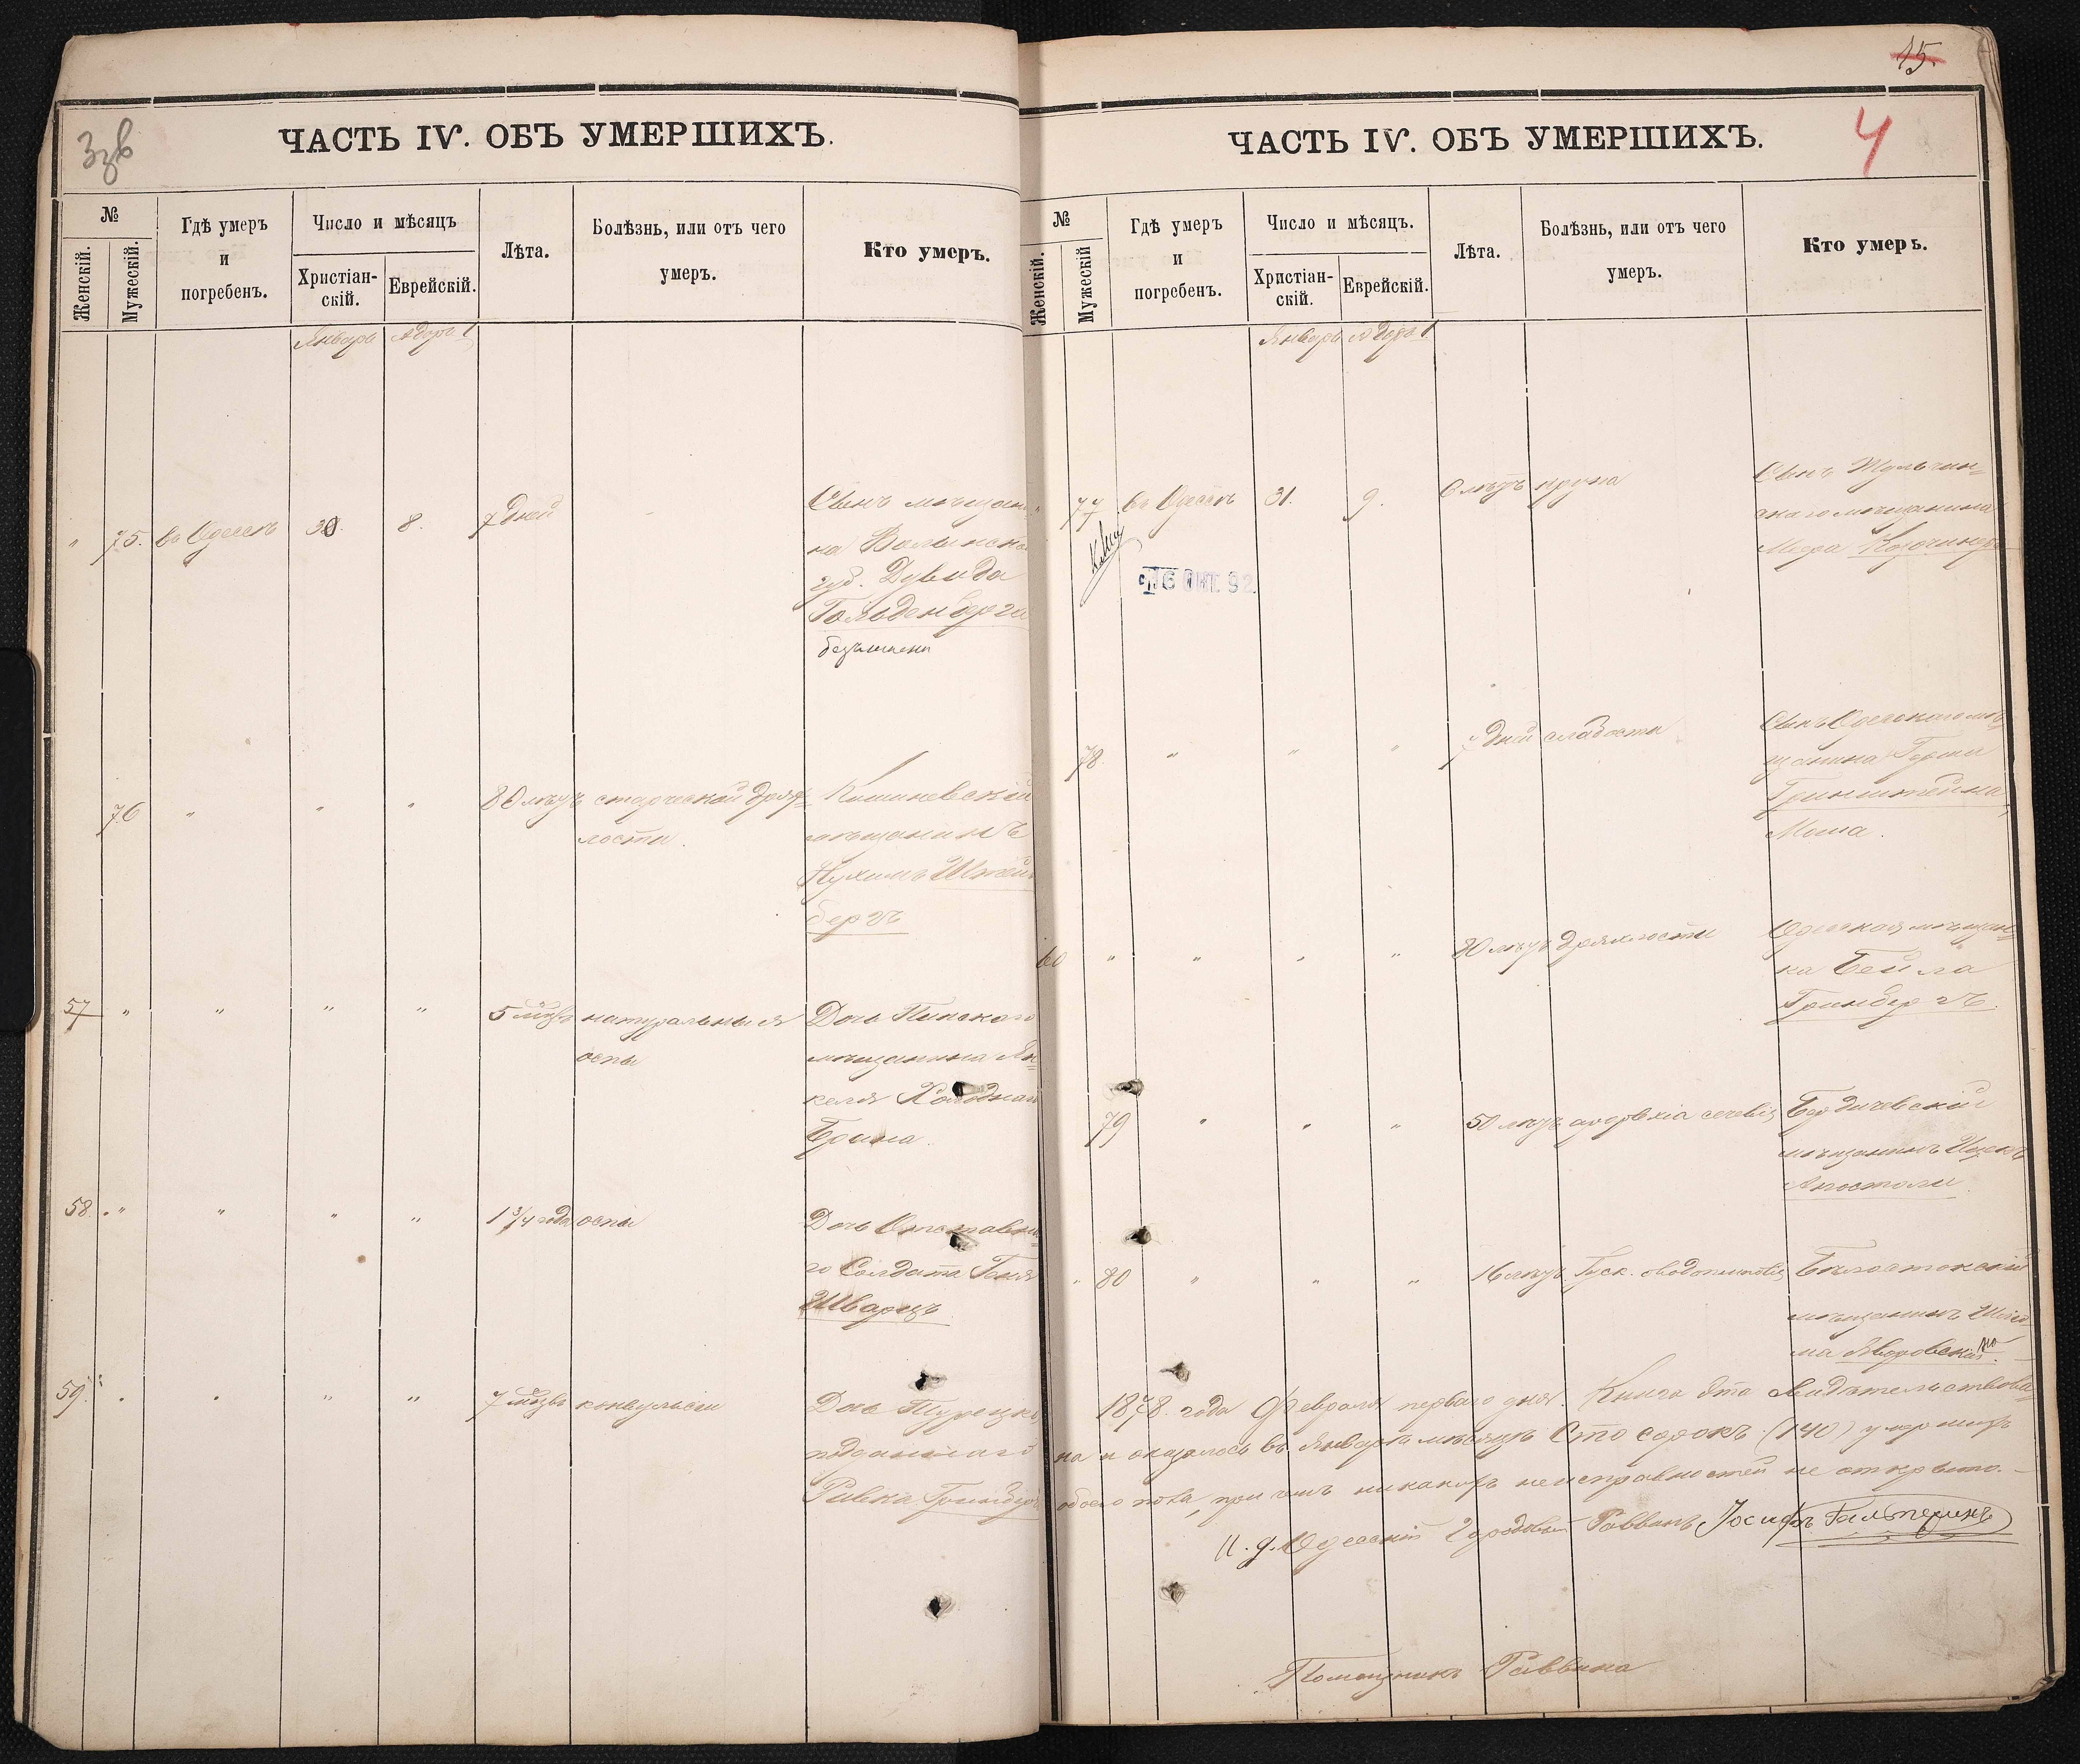 Ззв
ЧАСТЬ IV. ОБЪ УМЕРШИХЪ.
№
Женскій.
Мужескій.
Гдѣ умеръ
и
погребенъ.
Число и мѣсяцъ
Христіан-
скій.
Еврейскій.
Лѣта.
Болѣзнь, или отъ чего
умеръ.
Кто умеръ.
Январь Адаръ 1
" 75. въ Одессѣ 30. 8. 7 дней -
Сынъ мѣщани
на Волынско
губ. Дувида
Гольденберга
безъ имени
76 " " " 80 лѣтъ старческой дрях-
лости.
Кишиневскій
мѣщанинъ
Нухимъ Штейн
бергъ
57 " " " " 5 мѣс. натуральныя
оспы
Дочь Пинскаго
мѣщанина Ян-
келя
58. " " " " 1 3/4 года оспы
Дочь Отставна-
го Солдата Геня
Шварцъ
59. " " " " 7 мѣс. конвульсіи
Дочь Турецк
подданнаго
Ривка Гринберг
15.
4
ЧАСТЬ IV. ОБЪ УМЕРШИХЪ.
№
Женскій.
Мужескій
Гдѣ умеръ
и
погребенъ.
Число и мѣсяцъ.
Христіан-
скій.
Еврейскій.
Лѣта.
Болѣзнь, или отъ чего
умеръ.
Кто умеръ.
Январь Адаръ 1
" 77 въ Одессѣ 31. 9. 6 лѣтъ крупа
16 ОКТ. 92.
Сынъ Тульчин-
скаго мѣщанина
Меера
78. " " " 7 дней слабости
Сынъ Одесскаго мѣ-
щанина Герша
Гринштейна,
Моша.
60 " " " " 80 лѣтъ дряхлости
Одесская мѣщан-
ка Бейла
Гринбергъ.
79 " " " 50 лѣтъ
Бердичевскій
мѣщанинъ Ицекъ
Апостоли
" 80 " " " 16 лѣтъ
Бѣлостокскій
мѣщанинъ Шлё-
ма Яворовскій.
1878. года Февраля перваго дня. Книга эта свидѣтельствова-
на и оказалось въ Январѣ мѣсяцѣ Сто сорокъ (140) умершихъ
обоего пола, при чемъ никакихъ неисправностей не открыто. -
И. д. Одесскій Городовый Раввинъ Іосифъ Гальперинъ
Помощникъ Раввина